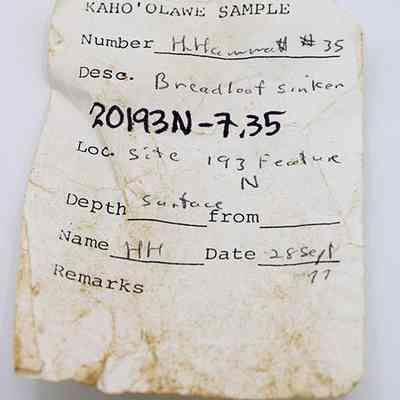 KAHO'OLAWE SAMPLE
Number H.Hammatt #35
Desc. Breadloaf sinker
20193N-7,35
Loc. Site 193 Feature
N
Depth surface from
Name HH Date 28 Sept
77
Remarks